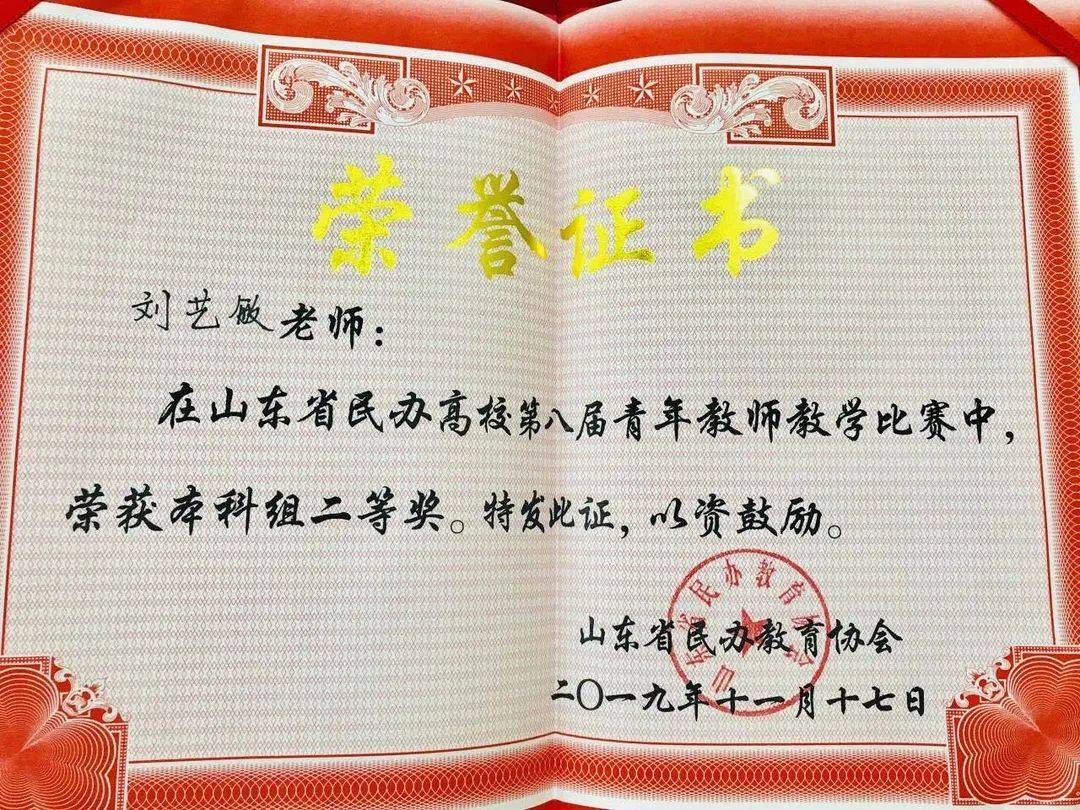 荣誉证书
刘艺敏老师：
在山东省民办高校第八届青年教师教学比赛中，
荣获本科组二等奖。特发此证，以资鼓励。
山东省民办教育协会
山东省民办教育协会
二〇一九年十一月十七日